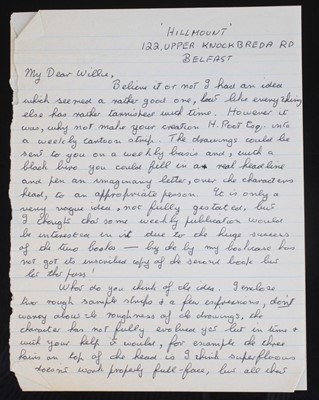 "HILLMOUNT"
122, UPPER KNOCKBREDA RD
BELFAST
My Dear Willie,
Believe it or not I had an idea
which seemed a rather good one, but like everything
else has rather tarnished with time. However it
was, why not make your creation H. Poot Esq. into
a weekly cartoon strip. The drawings could be
sent to you on a weekly basis and, with a
black biro you could fill in a real headline
and pen an imaginary letter, over the characters
head, to an appropriate person. It is only a
very vague idea, not fully gestated, but
I thought that some weekly publication would
be interested in it due to the huge success
of the two books — by the by my bookcase has
not got its inscribed copy of the second book but
let that pass!
What do you think of the idea. I enclose
two rough sample strips & a few expressions, don't
worry about the roughness of the drawings, the
character has not fully evolved yet but in time &
with your help it would, for example the three
hairs on top of the head is I think superfluous
doesn't work properly full-face, but all that